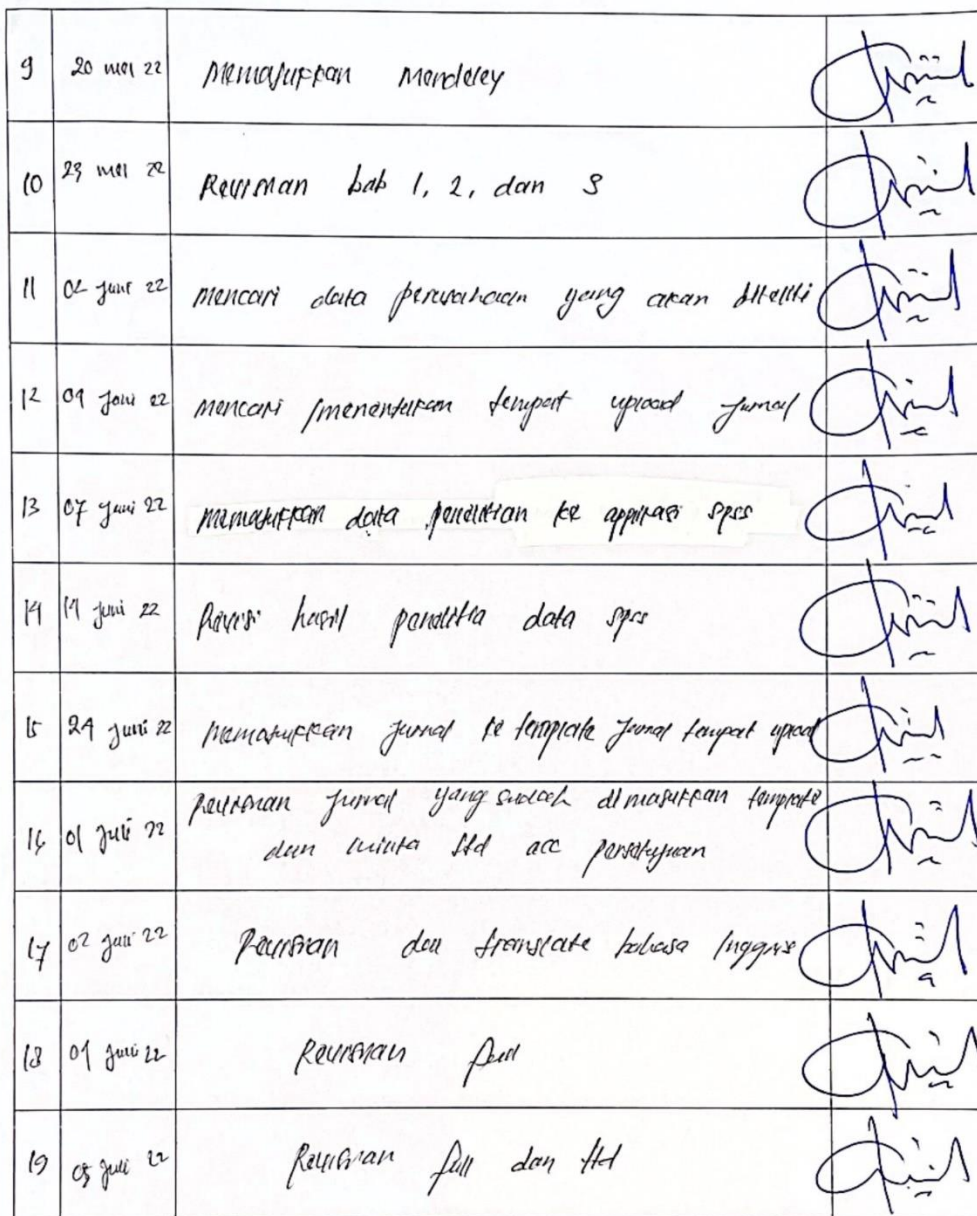 9 20 mei 22 Memasukkan Mendeley
10 23 mei 22 Revisian bab 1, 2, dan 3
11 02 Juni 22 mencari data perusahaan yang akan diteliti
12 04 Juni 22 mencari /menentukan tempat upload jurnal
13 07 Juni 22 memasukkan data penelitian ke applikasi spss
14 14 Juni 22 Revisi hasil penelitia data spss
15 24 Juni 22 memasukkan jurnal ke template jurnal tempat upload
16 01 Juli 22 Revisian jurnal yang sudah dimasukkan template
dan minta ttd acc persetujuan
17 02 Juli 22 Revisian dan translate bahasa Inggris
18 04 Juli 22 Revisian full
19 05 Juli 22 Revisian full dan ttd